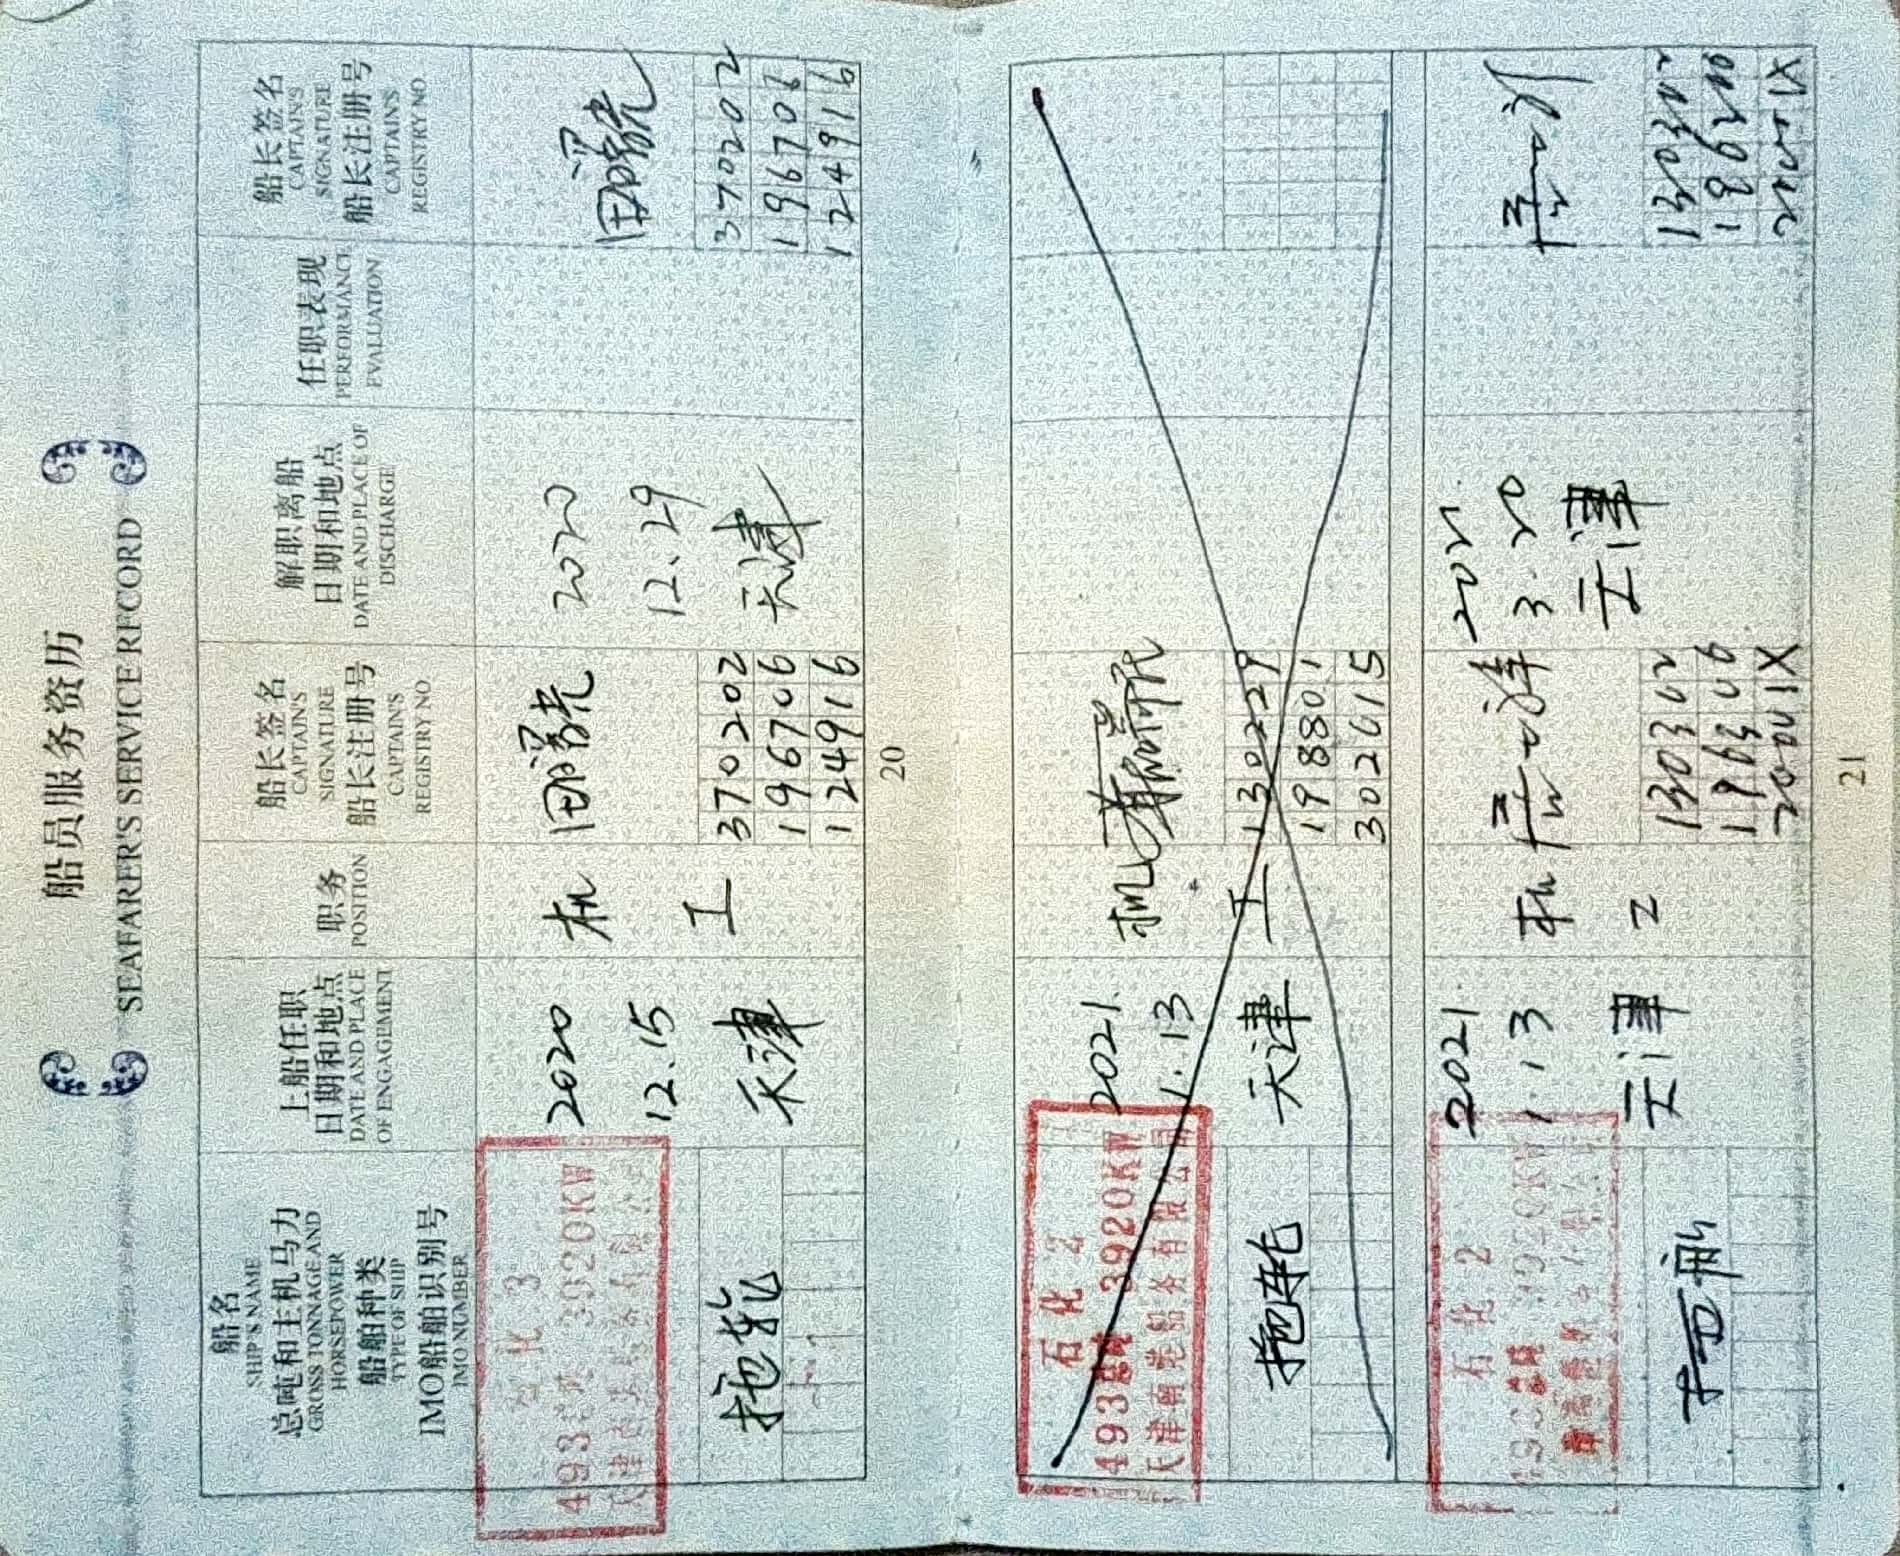 船员服务资历
SEAFARER'S SERVICE RECORD
船名
SHIP'S NAME
总吨和主机马力
GROSS TONNAGE AND
HORSEPOWER
船舶种类
TYPE OF SHIP
IMO船舶识别号
IMO NUMBER
上船任职
日期和地点
DATE AND PLACE
OF ENGAGEMENT
职务
POSITION
船长签名
CAPTAIN'S
SIGNATURE
船长注册号
CAPTAIN'S
REGISTRY NO
解职离船
日期和地点
DATE AND PLACE OF
DISCHARGE
任职表现
PERFORMANCE
EVALUATION
船长签名
CAPTAIN'S
SIGNATURE
船长注册号
CAPTAIN'S
REGISTRY NO
化 3
493 3920KW
拖轮
2020
12.15
天津
机
工
370202
196706
124916
2020
12.29
天津
370202
196706
124916
20
石化 2
493 3920KW
天津南港船务有限公司
拖轮
2021.
1.13
天津
机
工
130229
198801
302615
石化 2
3920KW
2021
1.13
天津
机
工
2021.
3.20
天津
21